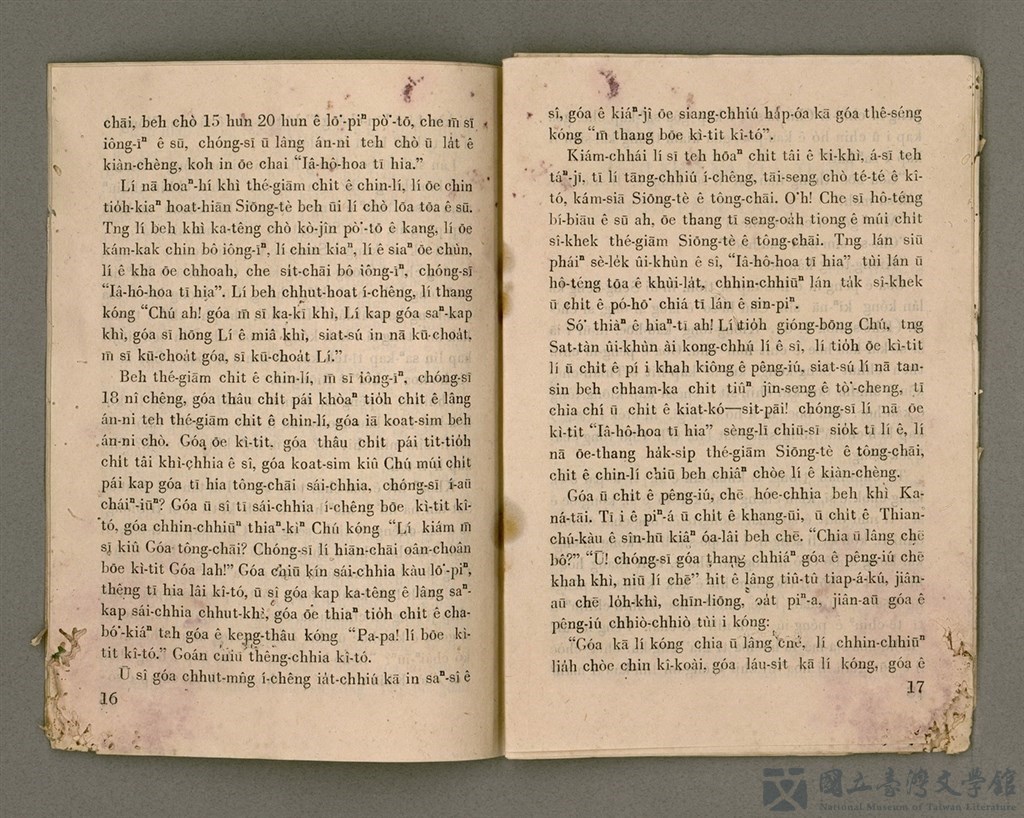 chāi, beh chò 15 hun 20 hun ê lō͘-piⁿ pò͘-tō, che m̄ sī
iông-īⁿ ê sū, chóng-sī ū lâng án-ni teh chò ū la̍t ê
kiàn-chèng, koh in ōe chai “Iâ-hô-hoa tī hia.”
Lí nā hoaⁿ-hí khì thé-giām chit ê chin-lí, lí ōe chin
tio̍h-kiaⁿ hoat-hiān Siōng-tè beh ūi lí chò lōa tōa ê sū.
Tng lí beh khì ka-têng chò kò-jîn pò͘-tō ê kang, lí ōe
kám-kak chin bô iông-īⁿ, lí chin kiaⁿ, lí ê siaⁿ ōe chùn,
lí ê kha ōe chhoah, che si̍t-chāi bô iông-īⁿ, chóng-sī
“Iâ-hô-hoa tī hia”. Lí beh chhut-hoat í-chêng, lí thang
kóng “Chú ah! góa m̄ sī ka-kī khì, Lí kap góa saⁿ-kap
khì, góa sī hōng Lí ê miâ khì, siat-sú in nā kū-choa̍t,
m̄ sī kū-choa̍t góa, sī kū-choa̍t Lí.”
Beh thé-giām chit ê chin-lí, m̄ sī iông-īⁿ, chóng-sī
18 nî chêng, góa thâu chi̍t pái khòaⁿ tio̍h chi̍t ê lâng
án-ni teh thé-giām chit ê chin-lí, góa iā koat-sim beh
án-ni chò. Góa ōe kì-tit, góa thâu chi̍t pái tit-tio̍h
chi̍t tâi khì-chhia ê sî, góa koat-sim kiû Chú múi chi̍t
pái kap góa tī hia tông-chāi sái-chhia, chóng-sī í-āu
cháiⁿ-iūⁿ? Góa ū sî tī sái-chhia í-chêng bōe kì-tit kî-
tó, góa chhin-chhiūⁿ thiaⁿ-kìⁿ Chú kóng “Lí kiám m̄
sī kiû Góa tông-chāi? Chóng-sī lí hiān-chāi oân-choân
bōe kì-tit Góa lah!” Góa chiū kín sái-chhia kàu lō͘-piⁿ,
thêng tī hia lâi kî-tó, ū sî góa kap ka-têng ê lâng saⁿ-
kap sái-chhia chhut-khì, góa ōe thiaⁿ tio̍h chi̍t ê cha-
bó͘-kiáⁿ tah góa ê keng-thâu kóng “Pa-pa! lí bōe kì-
tit kî-tó.” Goán chiū thêng-chhia kì-tó.
Ū sî góa chhut-mn̂g í-chêng ia̍t-chhiú kā in saⁿ-sî ê
16
sî, góa ê kiáⁿ-jî ōe siang-chhiú ha̍p-óa kā góa thê-séng
kóng “m̄ thang bōe kì-tit kî-tó”.
Kiám-chhái lí sī teh hōaⁿ chi̍t tâi ê ki-khì, á-sī teh
táⁿ-jī, tī lí tāng-chhiú í-chêng, tāi-seng chò té-té ê kî-
tó, kám-siā Siōng-tè ê tông-chāi. O͘h! Che sī hô-téng
bí-biāu ê sū ah, ōe thang tī seng-oa̍h tiong ê múi chi̍t
sî-khek thé-giām Siōng-tè ê tông-chāi. Tng lán siū
pháiⁿ sè-le̍k ûi-khùn ê sî, “Iâ-hô-hoa tī hia” tùi lán ū
hô-téng tōa ê khùi-la̍t, chhin-chhiūⁿ lán ta̍k sî-khek
ū chi̍t ê pó-hō͘ chiá tī lán ê sin-piⁿ.
Só͘ thiàⁿ ê hiaⁿ-tī ah! Lí tio̍h gióng-bōng Chú, tng
Sat-tàn ûi-khùn ài kong-chhú lí ê sî, lí tio̍h ōe kì-tit
lí ū chi̍t ê pí i khah kiông ê pêng-iú, siat-sú lí nā tan-
sin beh chham-ka chit tiûⁿ jîn-seng ê tò͘-cheng, tī
chia chí ū chi̍t ê kiat-kó—sit-pāi! chóng-sī lí nā ōe
kì-tit “Iâ-hô-hoa tī hia” sèng-lī chiū-sī sio̍k tī lí ê, lí
nā ōe-thang ha̍k-si̍p thé-giām Siōng-tè ê tông-chāi,
chit ê chin-lí chiū beh chiâⁿ chòe lí ê kiàn-chèng.
Góa ū chi̍t ê pêng-iú, chē hóe-chhia beh khì Ka-
ná-tāi. Tī i ê piⁿ-á ū chi̍t ê khang-ūi, ū chi̍t ê Thian-
chú-kàu ê sîn-hū kiâⁿ óa-lâi beh chē. “Chia ū lâng chē
bô?” “Ū! chóng-sī góa thang chhiáⁿ góa ê pêng-iú chē
khah khì, niū lí chē” hit ê lâng tiû-tû tiap-á-kú, jiân-
aū chē lo̍h-khì, chīn-liōng, oát piⁿ-a, jiân-aū góa ê
pêng-iú chhiò-chhiò tùi i kóng:
“Góa kā lí kóng chia ū lâng chē, lí chhin-chhiūⁿ
lia̍h chòe chin kî-koài, góa láu-si̍t kā lí kóng, góa ê
17
國立臺灣文學館
National Museum of Taiwan Literature